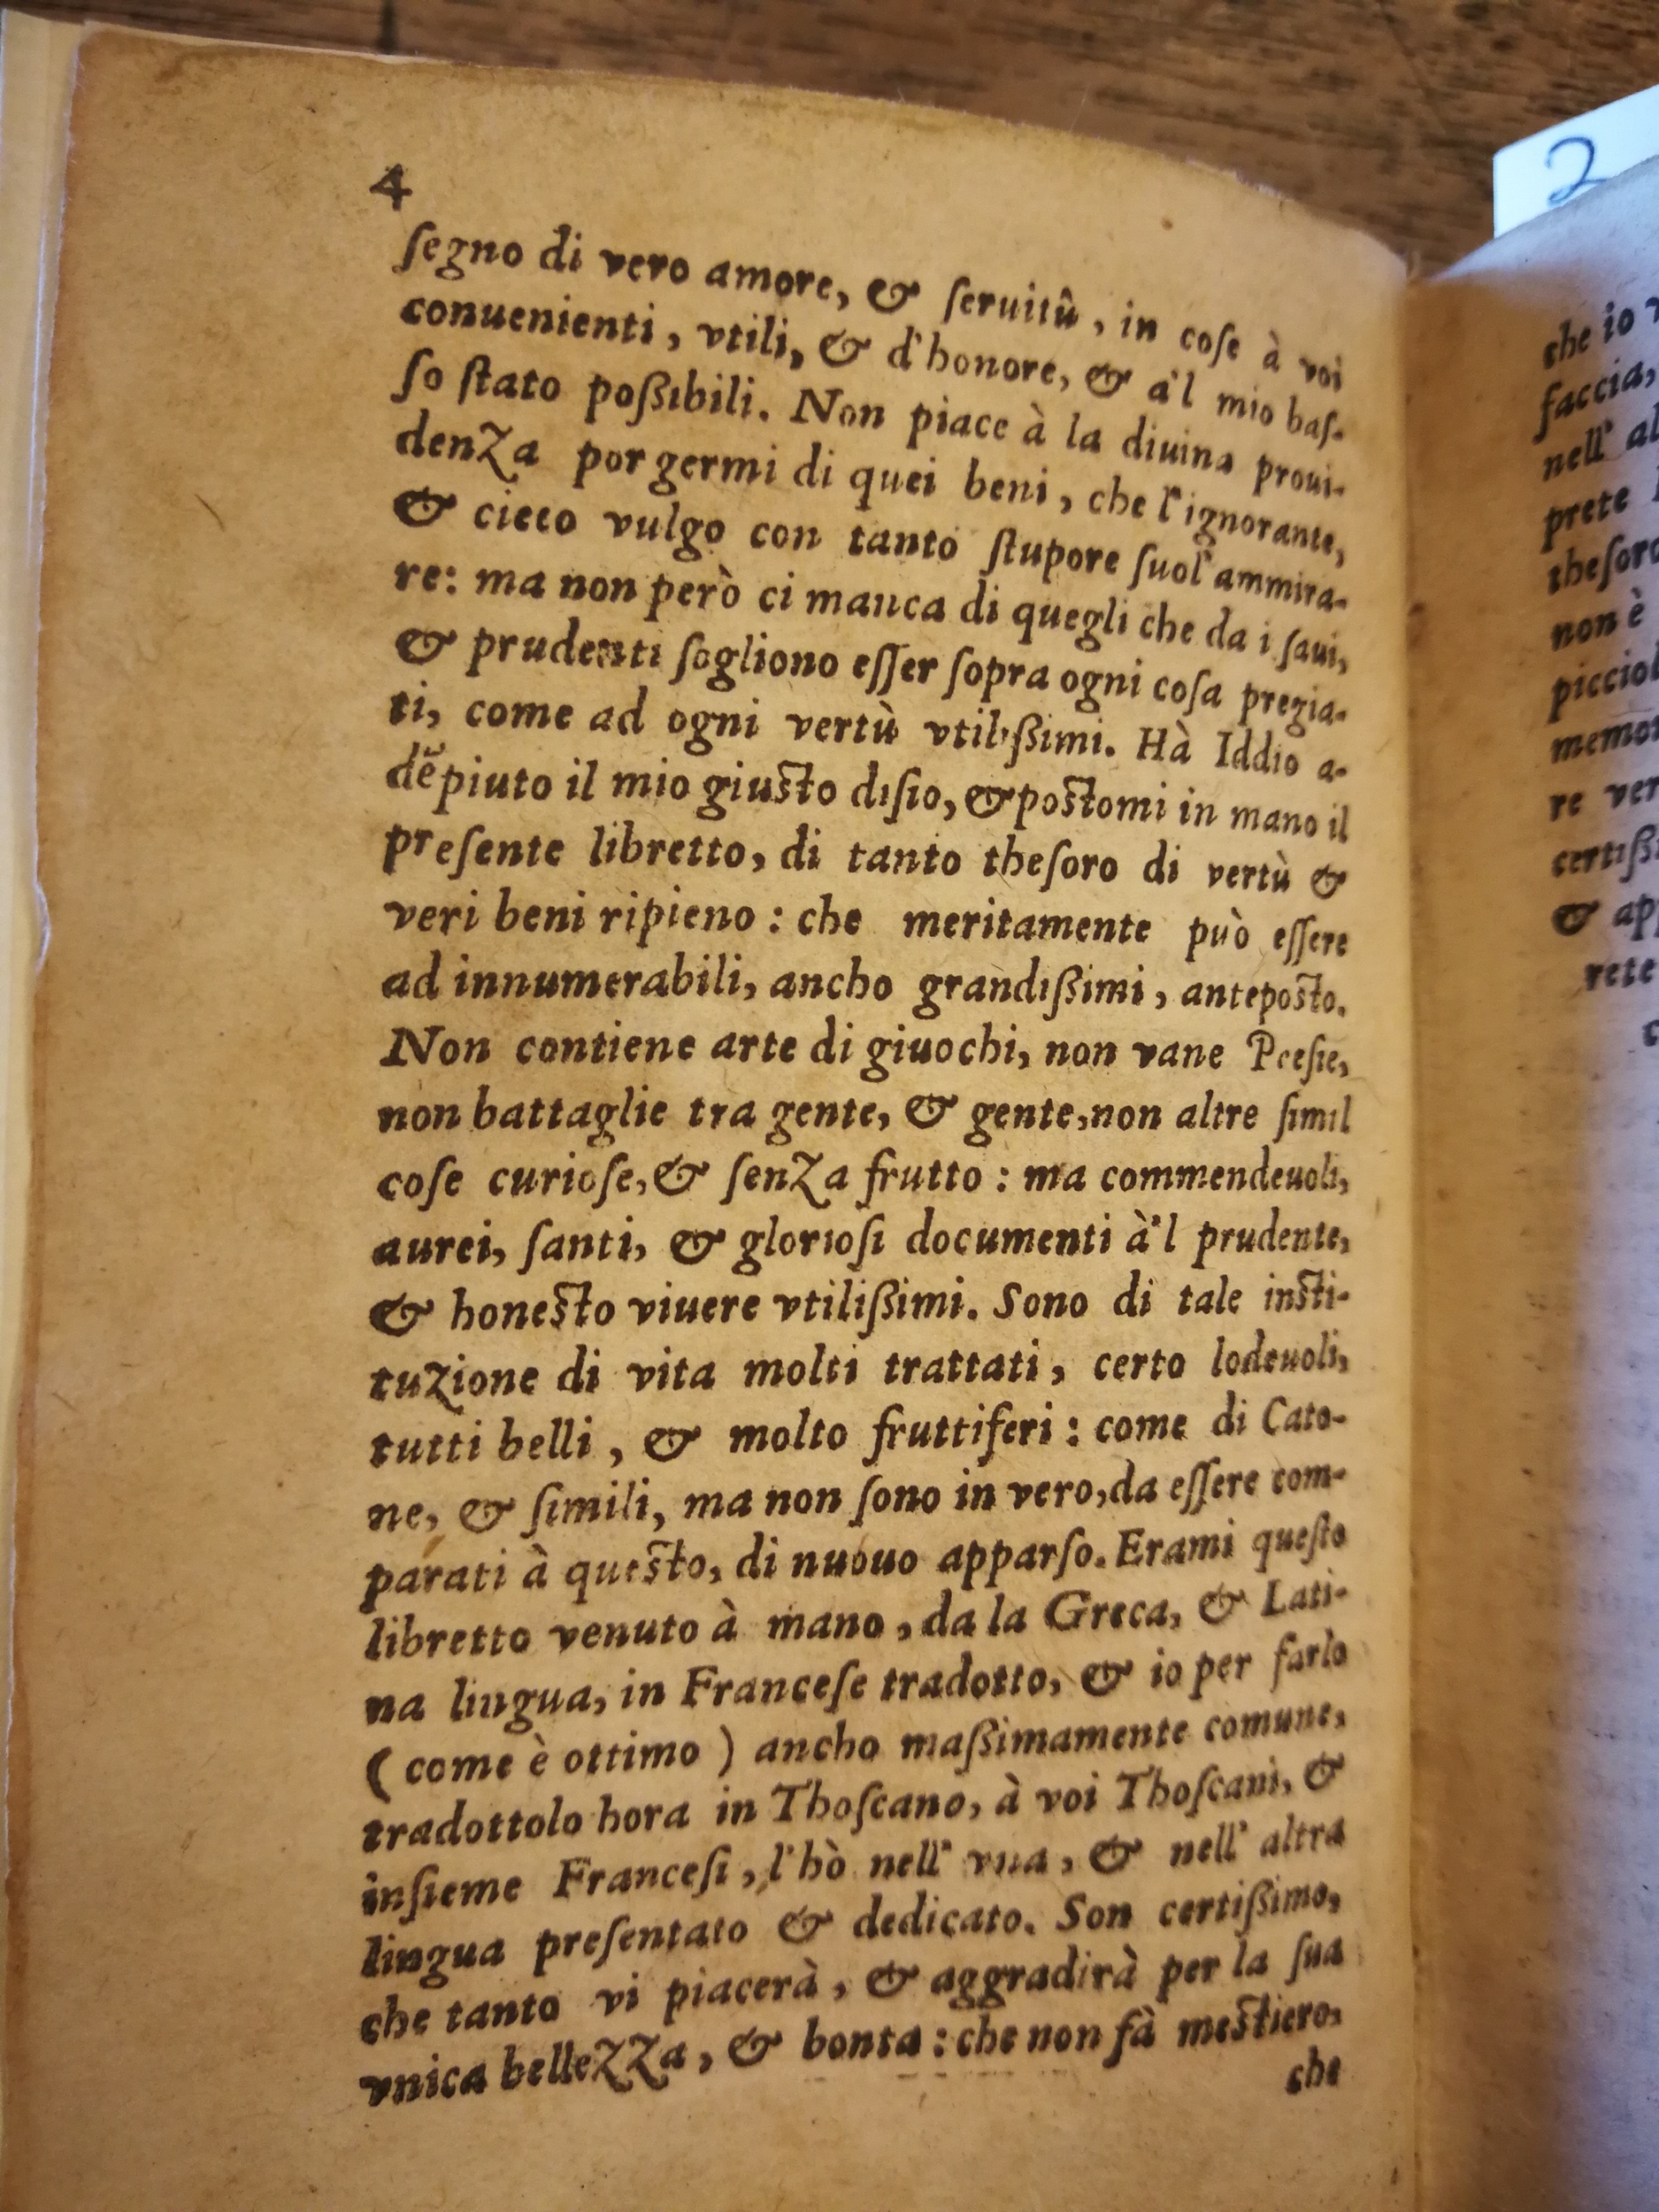 4
ſegno di vero amore, & ſeruitù, in coſe à voi
conuenienti, vtili, & d'honore, & a'l mio baſ-
ſo ſtato poßibili. Non piace à la diuina proui-
denza porgermi di quei beni, che l'ignorante,
& cieco vulgo con tanto ſtupore ſuol' ammira-
re: ma non però ci manca di quegli che da i ſaui,
& prudenti ſogliono eſſer ſopra ogni coſa pregia-
ti, come ad ogni vertù vtilißimi. Hà Iddio a-
dẽpiuto il mio giuſto diſio, & poſtomi in mano il
preſente libretto, di tanto theſoro di vertù &
veri beni ripieno: che meritamente può eſſere
ad innumerabili, ancho grandißimi, antepoſto.
Non contiene arte di giuochi, non vane Poeſie,
non battaglie tra gente, & gente, non altre ſimil
coſe curioſe, & ſenza frutto: ma commendeuoli,
aurei, ſanti, & glorioſi documenti à'l prudente,
& honeſto viuere vtilißimi. Sono di tale inſti-
tuzione di vita molti trattati, certo lodeuoli,
tutti belli, & molto fruttiferi: come di Cato-
ne, & ſimili, ma non ſono in vero, da eſſere com-
parati à queſto, di nuouo apparſo. Erami queſto
libretto venuto à mano, da la Greca, & Lati-
na lingua, in Franceſe tradotto, & io per farlo
(come è ottimo) ancho maßimamente comune,
tradottolo hora in Thoſcano, à voi Thoſcani, &
inſieme Franceſi, l'hò nell' vna, & nell' altra
lingua preſentato & dedicato. Son certißimo,
che tanto vi piacerà, & aggradirà per la ſua
vnica bellezza, & bonta: che non fà meſtiero,
che
che io
faccia,
nell' al
prete
theſoro
non è
picciol
memor
re ver
certißi
& app
rete
2